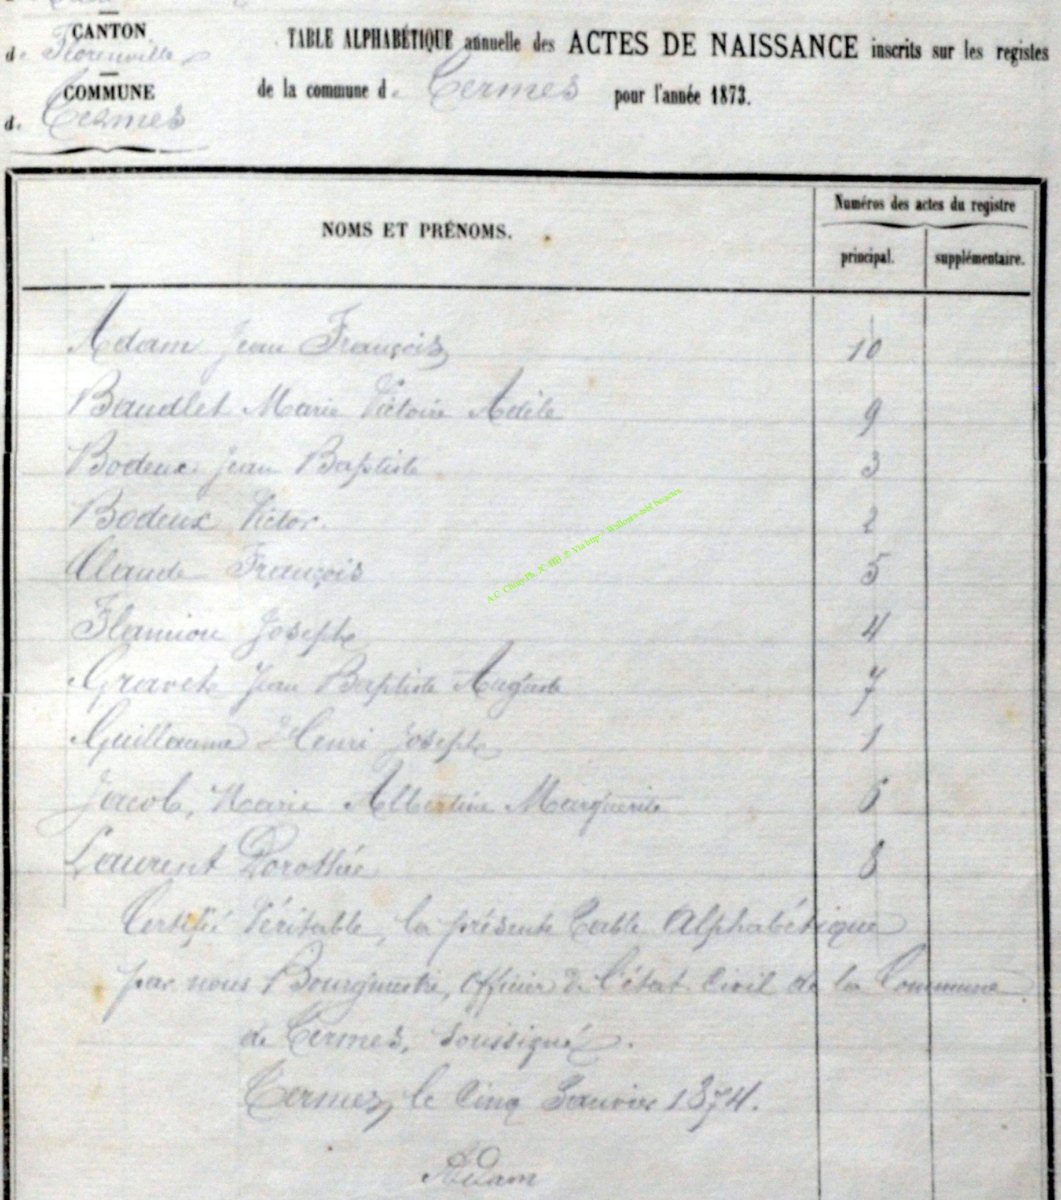 CANTON
de Florenville
COMMUNE
de Termes
TABLE ALPHABÉTIQUE annuelle des ACTES DE NAISSANCE inscrits sur les registes
de la commune de Termes pour l'année 1873.
NOMS ET PRÉNOMS.
Numéros des actes du registre
principal. supplémentaire.
Adam Jean François 10
Baudlet Marie Victoire Adèle 9
Bodeux Jean Baptiste 3
Bodeux Victor. 2
Claude François 5
Flamion Joseph 4
Gravet Jean Baptiste Auguste 7
Guillaume Henri Joseph 1
Jacob, Marie Albertine Marguerite 6
Laurent Dorothée 8
Certifié Véritable, la présente Table Alphabétique
par nous Bourgmestre, Officier de l'état Civil de la Commune
de Termes, soussigné.
Termes, le Cinq Janvier 1874.
Adam